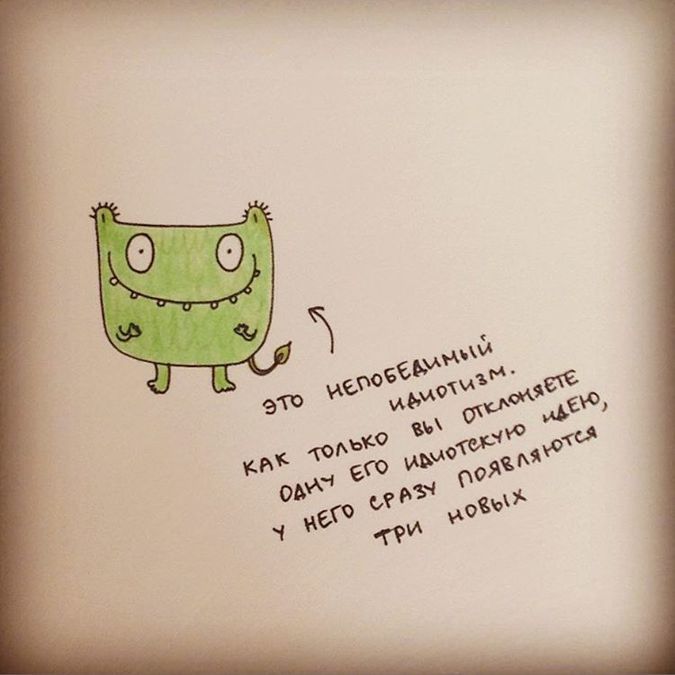 ЭТО НЕПОБЕДИМЫЙ
ИДИОТИЗМ.
КАК ТОЛЬКО ВЫ ОТКЛОНЯЕТЕ
ОДНУ ЕГО ИДИОТСКУЮ ИДЕЮ,
У НЕГО СРАЗУ ПОЯВЛЯЮТСЯ
ТРИ НОВЫХ